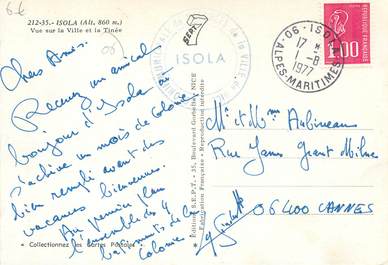 212-35. - ISOLA (Alt. 860 m.)
Vue sur la Ville et la Tinée
Chers Amis.
Recevez un amical
bonjour d'Isola où
s'achève un mois de Colonie
bien rempli avant des
vacances bienvenues.
Au premier plan
l'ensemble des 4
bâtiments de la
Colonie.
« Collectionnez les Cartes Postales »
Editions S.E.P.T. - 35, Boulevard Gorbella, NICE
Fabrication Française - Reproduction interdite
SEPT
ISOLA
06 - ISOLA
17 H
1 - 8
1977
ALPES-MARITIMES
1,00
Mr et Mme Aubineau
Rue
06400 CANNES